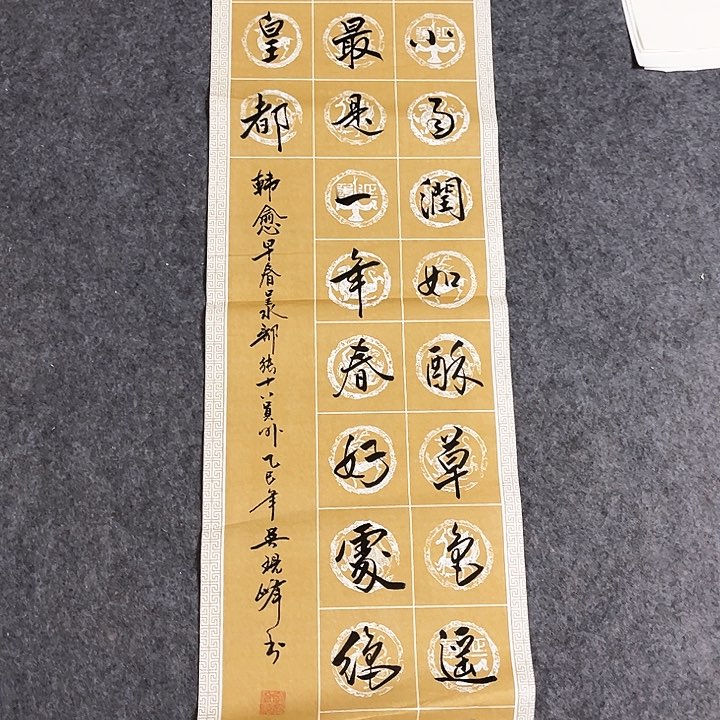 小雨潤如酥草色遥
最是一年春好處絶
皇都
韩愈早春呈水部张十八員外 乙巳年 吴琨峰书